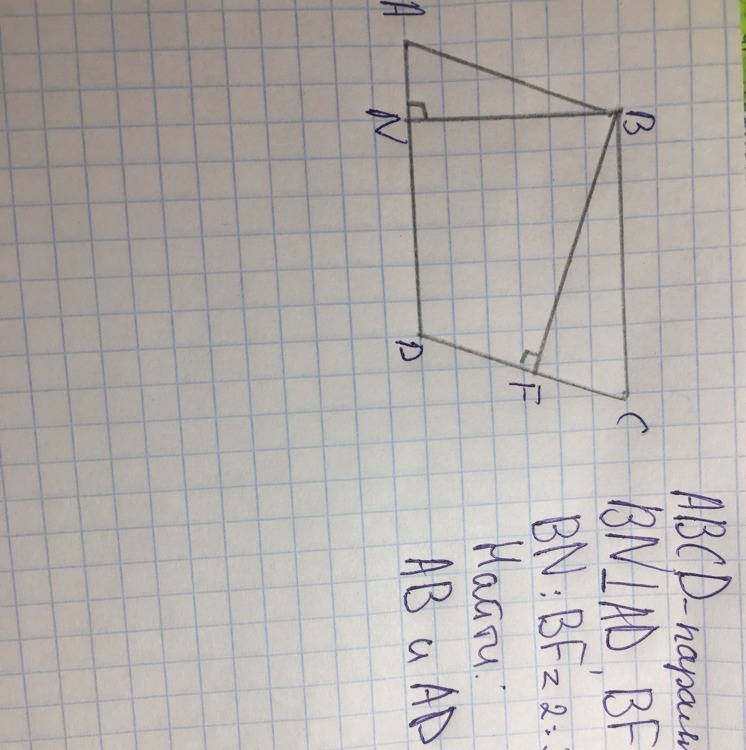 A
B
N
D
F
C
ABCD-парал
BN⊥AD, BF
BN:BF=2:
Найти:
AB и AD